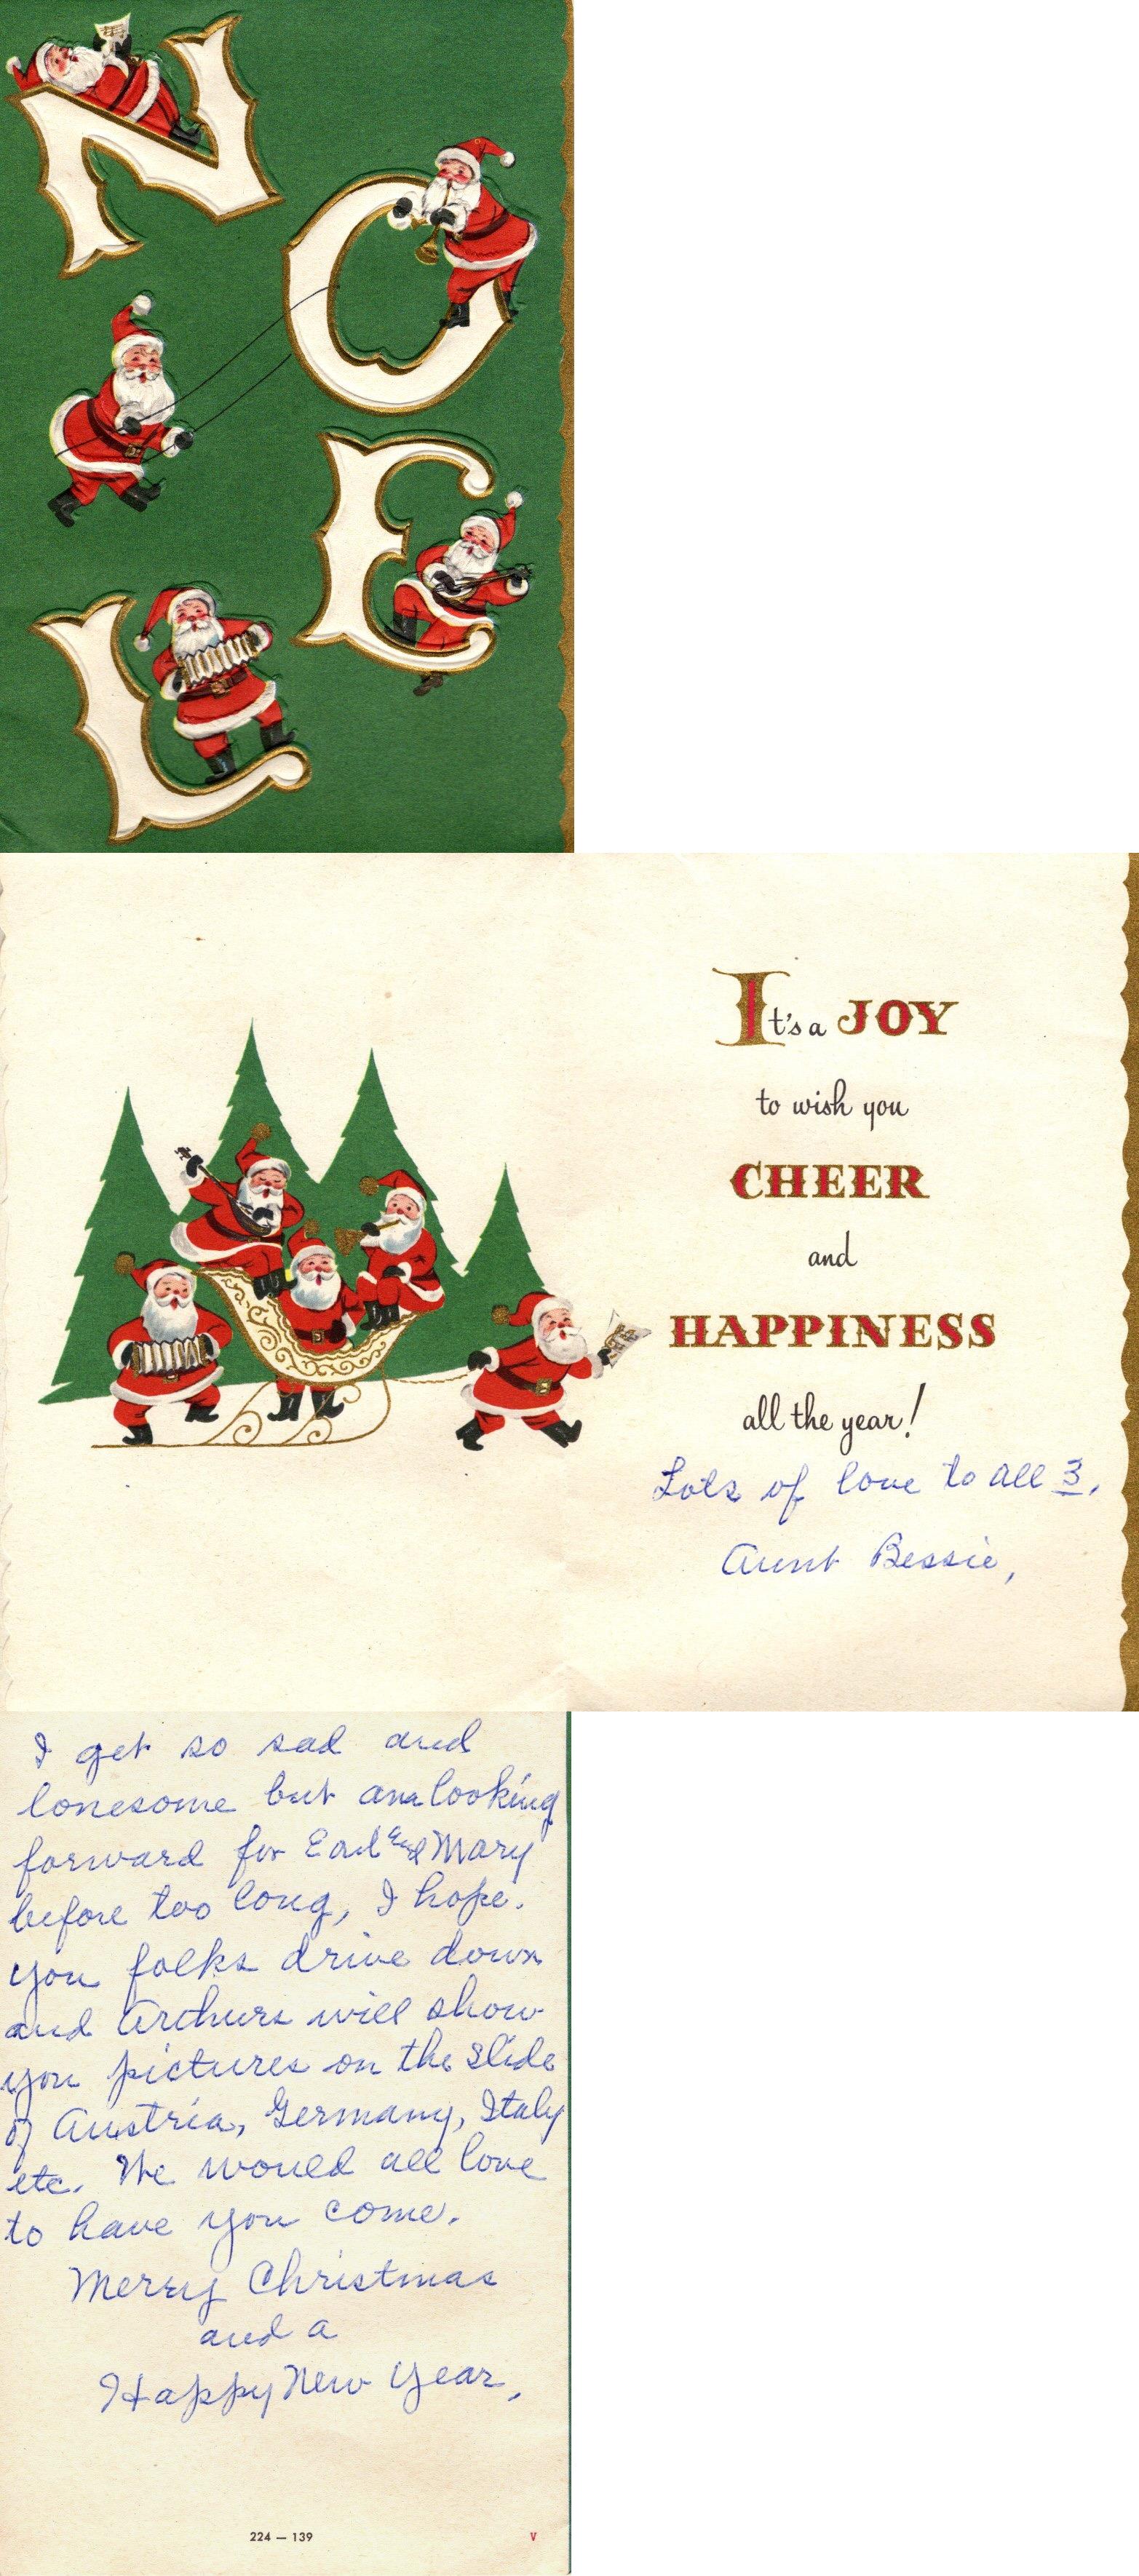 NOEL
It's a JOY
to wish you
CHEER
and
HAPPINESS
all the year!
Lots of love to all 3,
Aunt Bessie,
I get so sad and
lonesome but am looking
forward for Earl and Mary
before too long, I hope.
You folks drive down
and Arthurs will show
you pictures on the slide
of Austria, Germany, Italy
etc. We would all love
to have you come.
Merry Christmas
and a
Happy New Year,
224 — 139
V